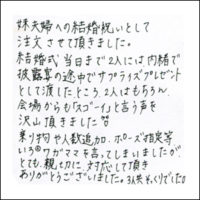 妹夫婦への結婚祝いとして
注文させて頂きました。
結婚式当日まで2人には内緒で
披露宴の途中でサプライズプレゼント
として渡したところ、2人はもちろん、
会場からも「スゴーイ」と言う声を
沢山頂きました
乗り物や人数追加、ポーズ指定等
いろいろワガママを言ってしまいましたが、
とても親切に対応して頂き
ありがとうございました。3人共そっくりでした